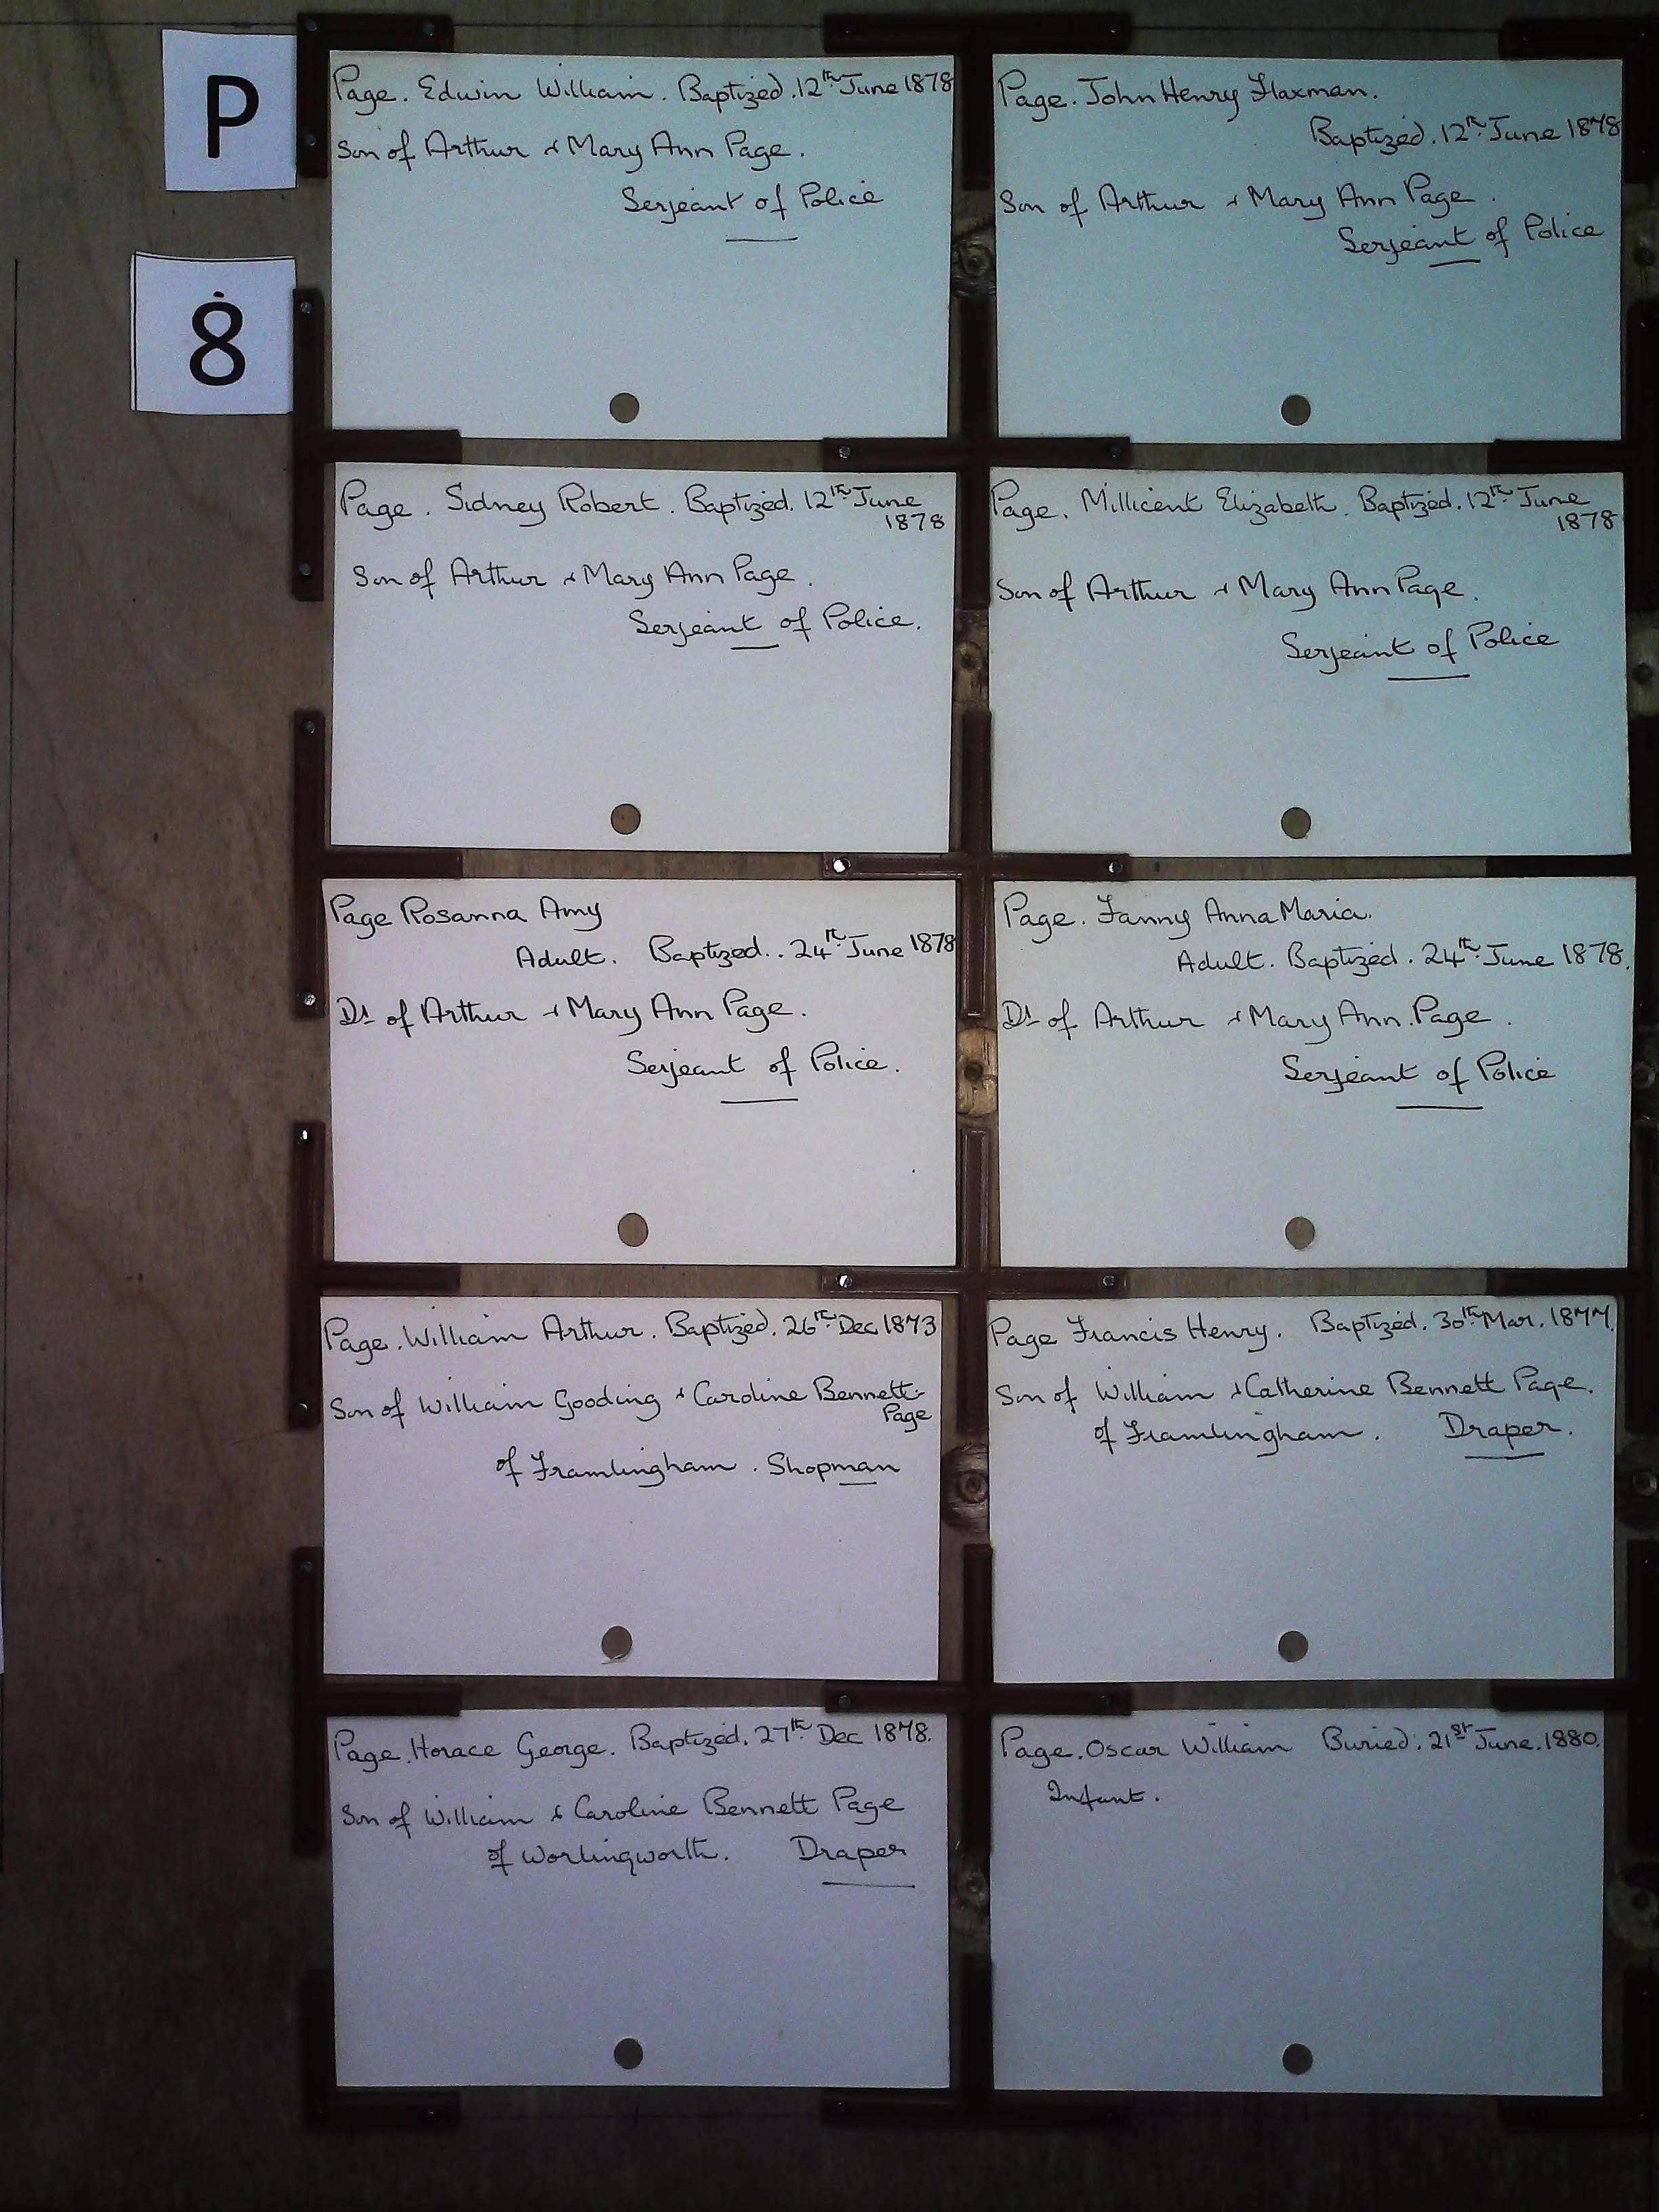 P
8
Page. Edwin William. Baptized. 12th June 1878
Son of Arthur & Mary Ann Page.
Serjeant of Police
Page. John Henry Flaxman.
Baptized. 12th June 1878
Son of Arthur & Mary Ann Page.
Serjeant of Police
Page. Sidney Robert. Baptized. 12th June
1878
Son of Arthur & Mary Ann Page.
Serjeant of Police.
Page. Millicent Elizabeth. Baptized. 12th June
1878
Son of Arthur & Mary Ann Page.
Serjeant of Police
Page Rosanna Amy
Adult. Baptized.. 24th June 1878
Dr of Arthur & Mary Ann Page.
Serjeant of Police.
Page. Fanny Anna Maria.
Adult. Baptized. 24th June 1878.
Dr of Arthur & Mary Ann. Page.
Serjeant of Police
Page. William Arthur. Baptized. 26th Dec 1873
Son of William Gooding & Caroline Bennett-
Page
of Framlingham. Shopman
Page Francis Henry. Baptized. 30th Mar. 1877.
Son of William & Catherine Bennett Page.
of Framlingham. Draper.
Page. Horace George. Baptized. 27th Dec 1878.
Son of William & Caroline Bennett Page
of Worlingworth. Draper
Page. Oscar William Buried. 21st June. 1880.
Infant.